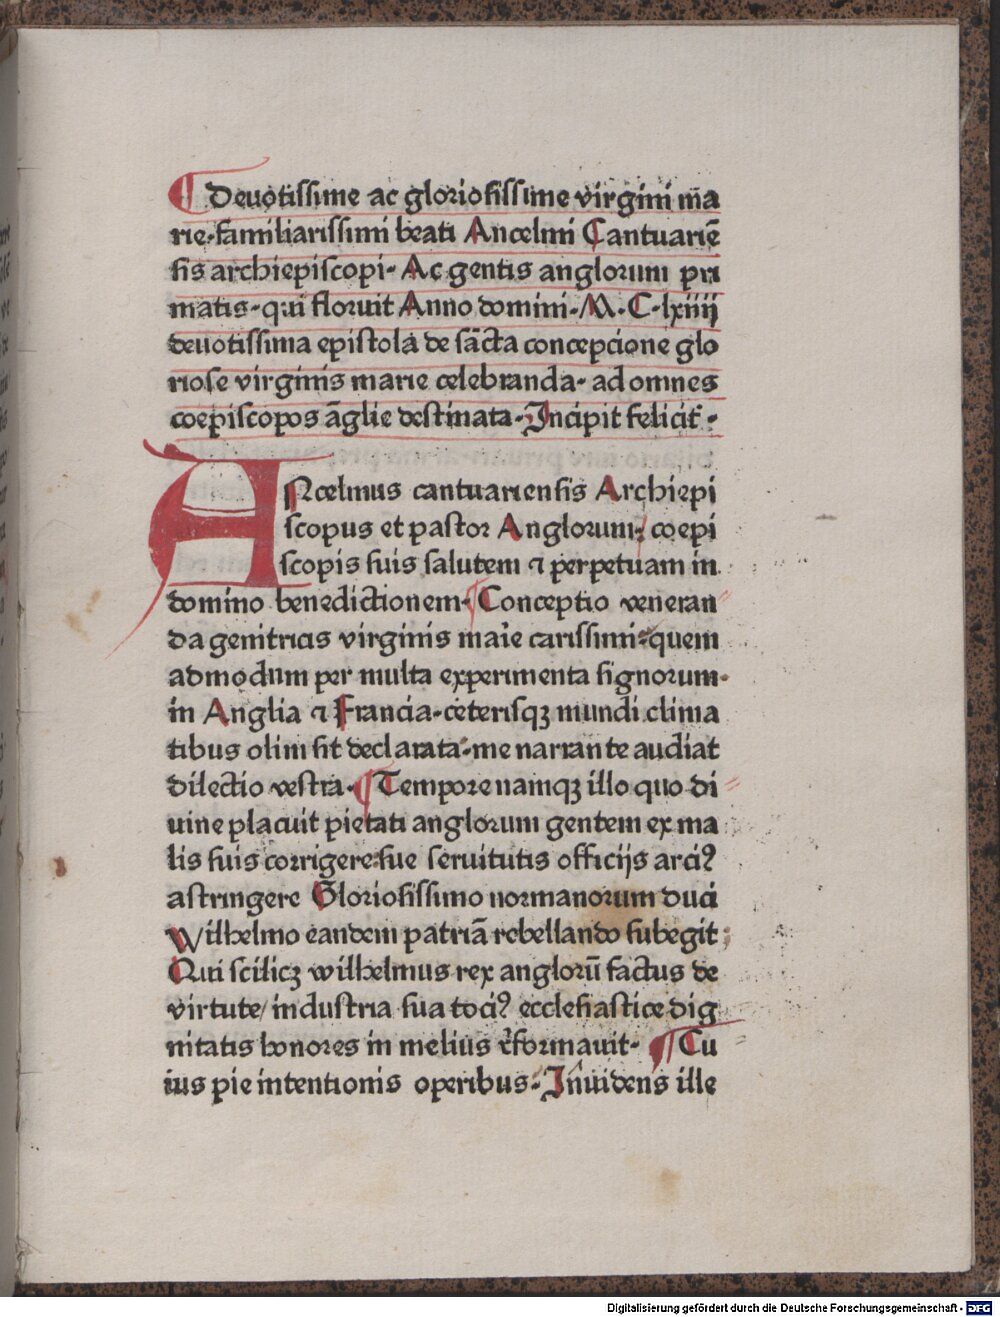 ¶ Deuotissime ac gloriosissime virgini m̄a
rie·familiarissimi beati Ancelmi Cantuariē
sis archiepiscopi· Ac gentis anglorum pri
matis·qui floruit Anno domini·M·C·lxiiij
deuotissima epistola de sācta concepcione glo
riose virginis marie celebranda· ad omnes
coepiscopos āglie destinata·Incipit felicit̄·
ANcelmus cantuariensis Archiepi
scopus et pastor Anglorum: coepi
scopis suis salutem ⁊ perpetuam in
domino benedictionem·¶Conceptio veneran
da genitricis virginis maīe carissimi:quem
admodum per multa experimenta signorum·
in Anglia ⁊ Francia·ceterisqꝫ mundi clima
tibus olim sit declarata·me narrante audiat
dilectio vestra·¶Tempore namqꝫ illo quo di
uine placuit pietati anglorum gentem ex ma
lis suis corrigere:sue seruitutis officijs arciꝰ
astringere Gloriosissimo normanorum duci
Wilhelmo eandem patriā rebellando subegit:
Qui scilicꝫ wilhelmus rex anglorū factus de
virtute/industria sua tociꝰ ecclesiastice dig
nitatis honores in melius r̄formauit· ¶Cu
ius pie intentionis operibus·Inuidens ille
Digitalisierung gefördert durch die Deutsche Forschungsgemeinschaft - DFG